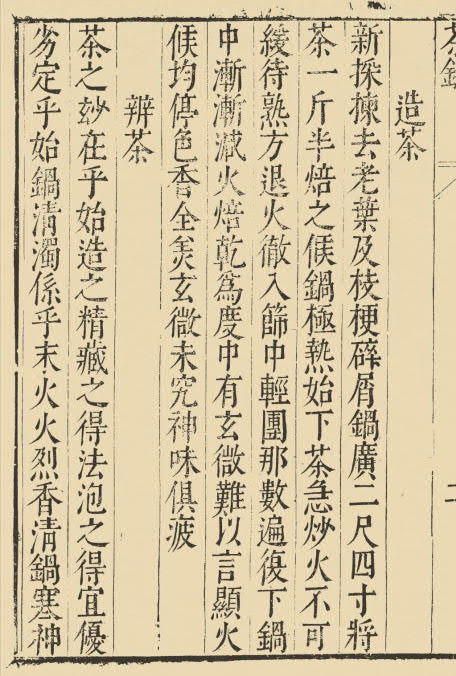 茶錄
造茶
新採揀去老葉及枝梗碎屑鍋廣二尺四寸將
茶一斤半焙之候鍋極熱始下茶急炒火不可
緩待熟方退火徹入篩中輕團那數遍復下鍋
中漸漸減火焙乾爲度中有玄微難以言顯火
候均停色香全美玄微未究神味俱疲
辨茶
茶之玅在乎始造之精藏之得法泡之得宜優
劣定乎始鍋清濁係乎末火火烈香清鍋寒神